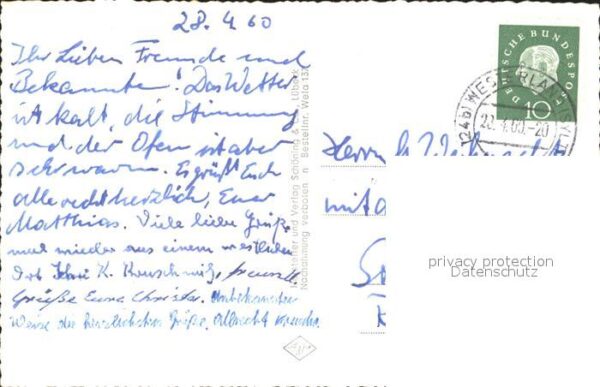 28.4.60
Ihr Lieben Freunde und
Bekannte! Das Wetter
ist kalt, die Stimmung
und der Ofen ist aber
sehr warm. Es grüßt Euch
alle recht herzlich, Euer
Matthias. Viele liebe Grüße
mal wieder aus einem westlichen
Grüße Eure Christa. Unbekannter
Weise die herzlichsten Grüße. Albrecht
Schöning & Co., Lübeck
Nachahmung verboten Bestellnr. Weta 131
DEUTSCHE BUNDESPOST
10
(24b) WESTERLAND (SYLT)
28.4.60.-20
Herrn
mit
privacy protection
Datenschutz